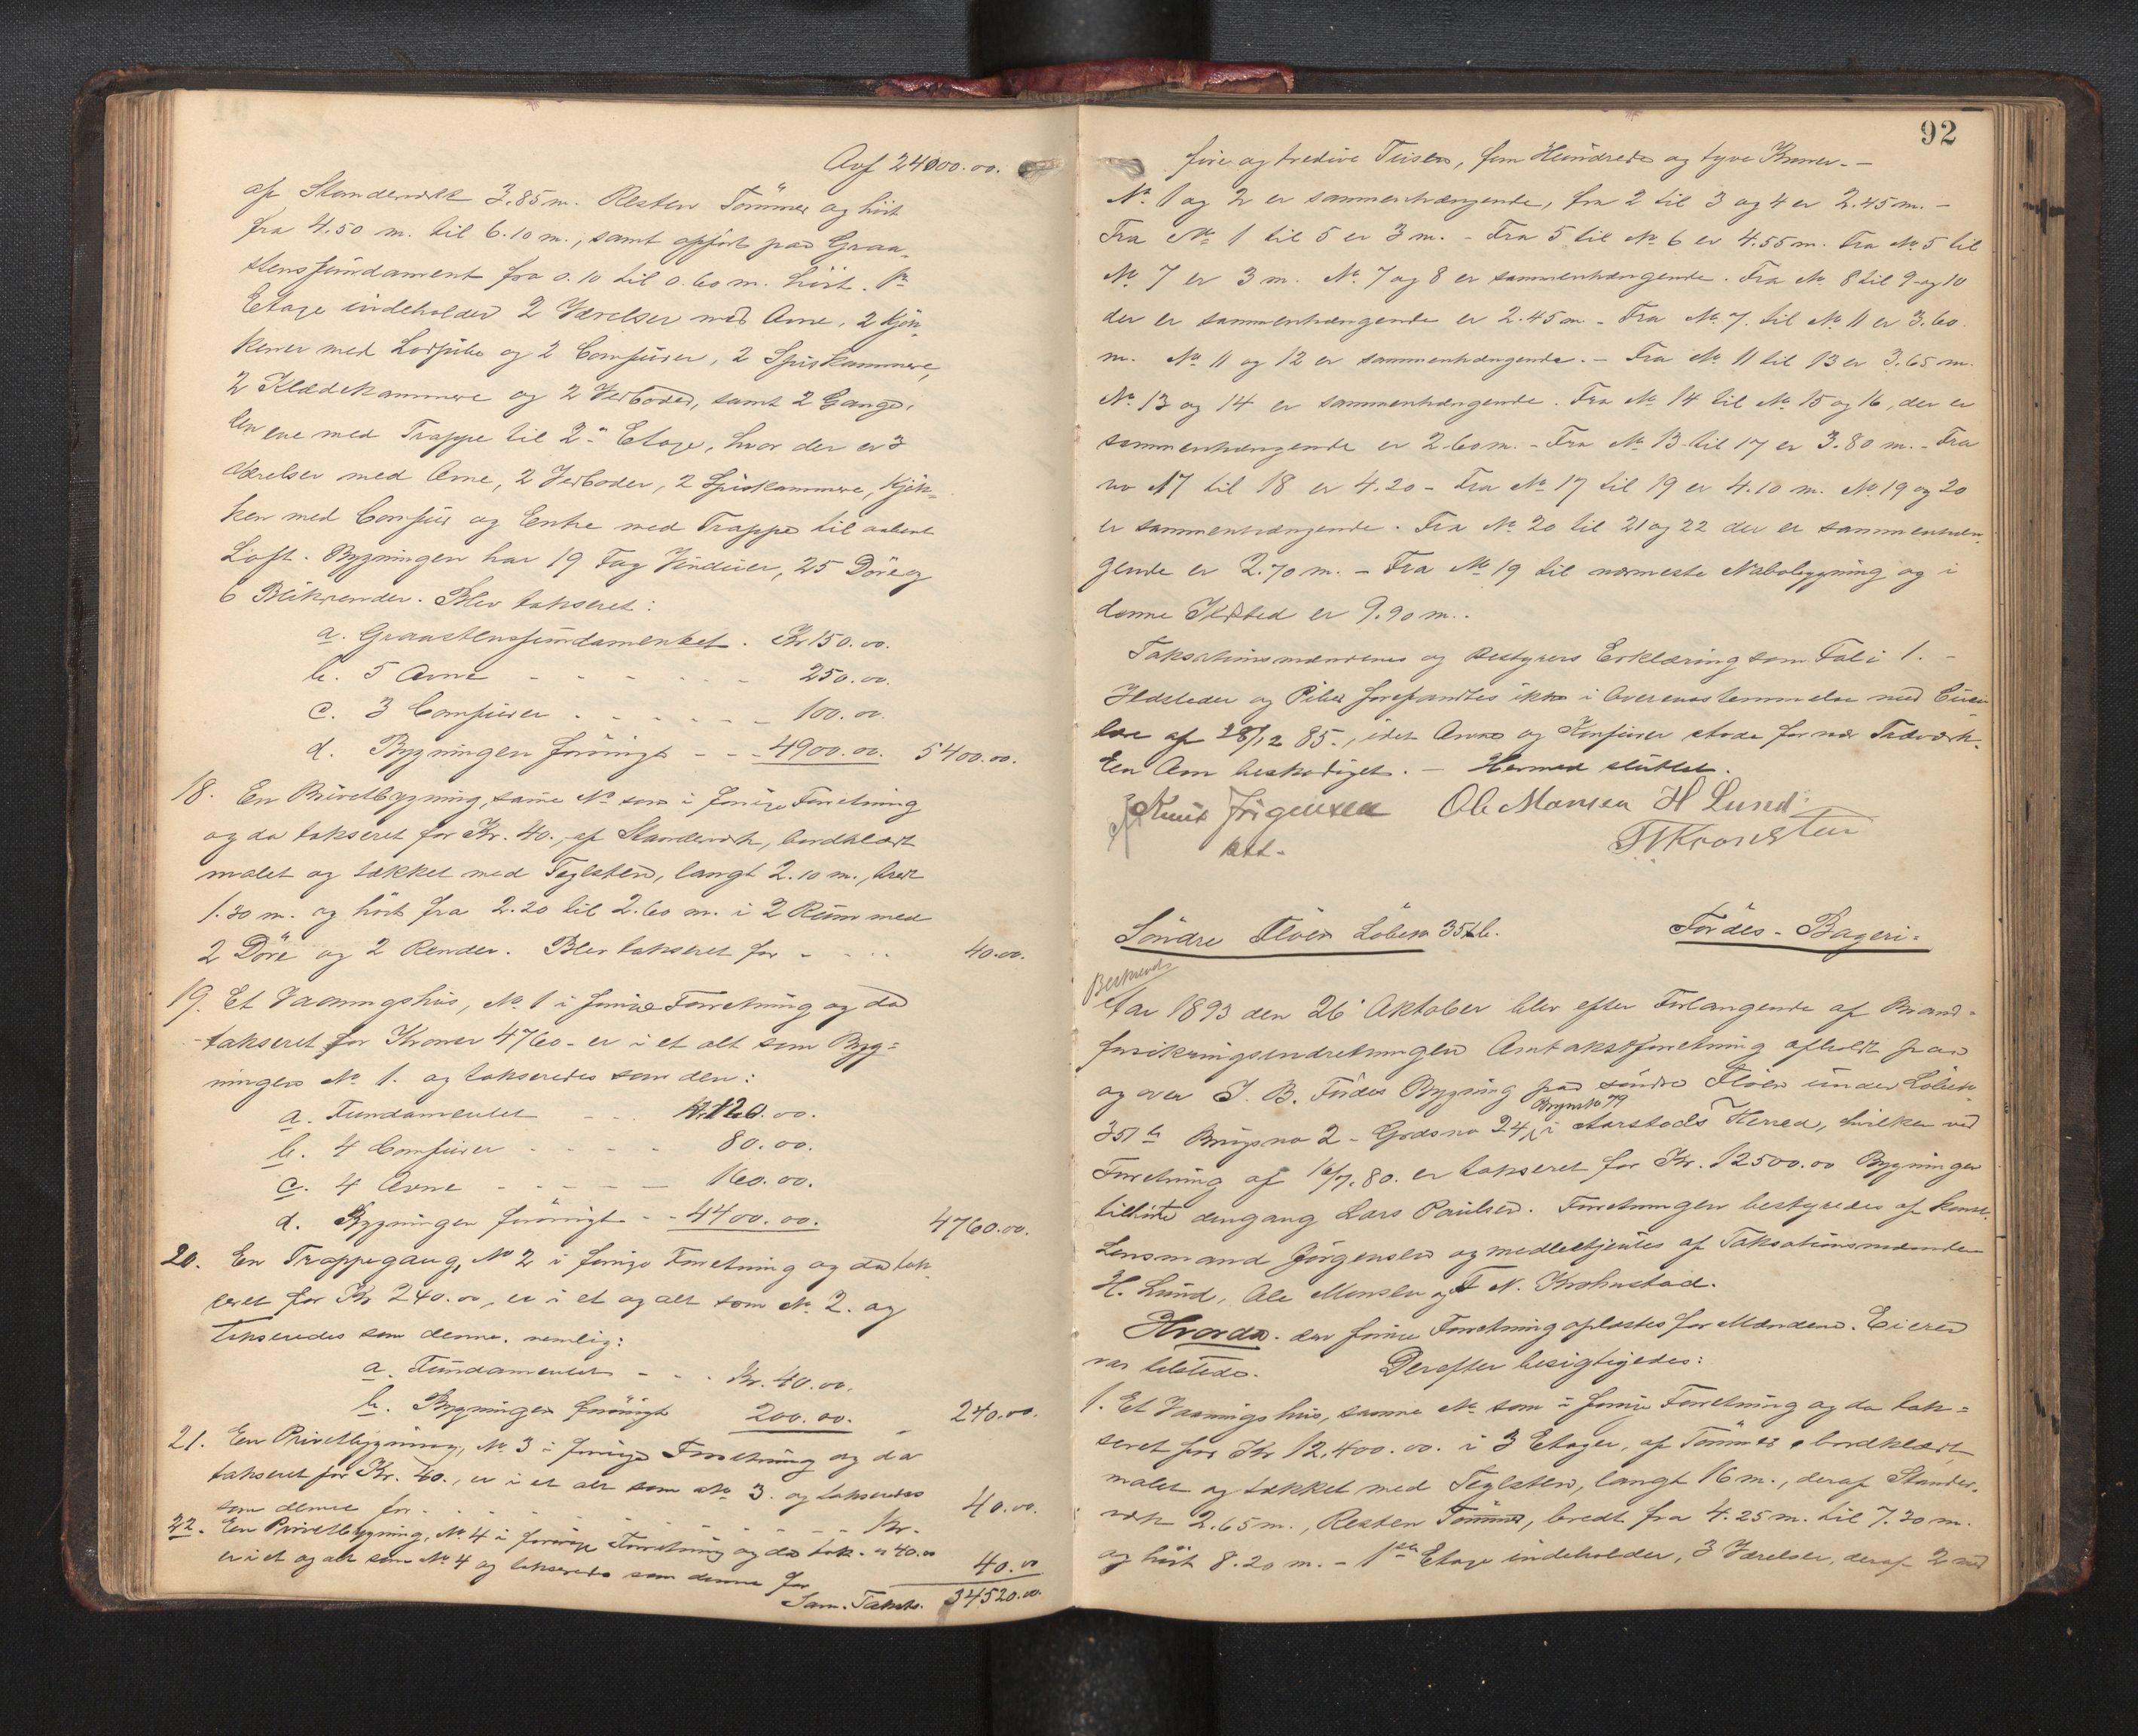 Ovf 24000.00.
af Standerværk 3.85 m. Resten Tömmer og höit
fra 4.50 m. til 6.10 m., samt opfört paa Graa-
stensfundament fra 0.10 til 0.60 m. höit. 1ste
Etage indeholder 2 Værelser med Arne, 2 Kjök-
kener med og 2 Comfurer, 2 Spiskammere,
2 Klædekammere og 2 Vedboder, samt 2 Gange,
den ene med Trappe til 2den Etage, hvor der er 3
Værelser med Arne, 2 Vedboder, 2 Spiskammere, Kjök-
ken med Comfur og Entre med Trappe til aabent
Loft. Bygningen har 19 Fag Vinduer, 25 Döre og
6 Blikrender. Blev takseret:
a. Graastensfundamentet. Kr 150.00.
b. 5 Arne - - - - - 250.00.
c. 3 Comfurer - - - - - 100.00.
d. Bygningen forövrigt - - - 4900.00. 5400.00.
18. En Privetbygning, samme No som i forrige Forretning
og da takseret for Kr. 40., af Standerværk, bordklædt
malet og tækket med Teglsten, langt 2.10 m., bredt
1.30 m. og höit fra 2.20 til 2.60 m. i 2 Rum med
2 Döre og 2 Render. Blev takseret for - - - 40.00.
19. Et Vaaningshus, No 1 i forrige Forretning og da
takseret for Kroner 4760 - er i et alt som Byg=
ningen No 1. og takseredes som den:
a. Fundamentet - - - Kr 120.00.
b. 4 Comfurer - - - - 80.00.
c. 4 Arne - - - - - 160.00.
d. Bygningen forövrigt - - 4400.00. 4760.00.
20. En Trappegang, No 2 i forrige Forretning og da tak-
seret for Kr 240.00, er i et og alt som No 2. og
takseredes som denne, nemlig:
a. Fundamentet - - - Kr. 40.00.
b. Bygningen forövrigt 200.00. 240.00.
21. En Privetbygning, No 3 i forrige Forretning og da
takseret for Kr. 40., er i et alt som No 3. og takseredes
som denne for - - - - - - Kr. 40.00.
22. En Privetbygning, No 4 i forrige Forretning og da tak. 40.00
er i et og alt som No 4 og takseredes som denne for 40.00
Sam. Takst. 34520.00.
92
fire og tredive Tusen, fem Hundrede og tyve Kroner. -
No 1 og 2 er sammenhængende, fra 2 til 3 og 4 er 2.45 m. -
Fra No 1 til 5 er 3 m. - Fra 5 til No 6 er 4.55 m. Fra No 5 til
No 7 er 3 m. No 7 og 8 er sammenhængende. Fra No 8 til 9 og 10
der er sammenhængende er 2.45 m - Fra No 7. til No 11 er 3.60
m. No 11 og 12 er sammenhængende. - Fra No 11 til 13 er 3.65 m.
No 13 og 14 er sammenhængende. Fra No 14 til No 15 og 16, der er
sammenhængende er 2.60 m. - Fra No 13 til 17 er 3.80 m. - Fra
no 17 til 18 er 4.20 - Fra No 17 til 19 er 4.10 m. No 19 og 20
er sammenhængende. Fra No 20 til 21 og 22 der er sammenhæn-
gende er 2.70 m. - Fra No 19 til nærmeste Nabobygning og i
denne Ildsted er 9.90 m.
Taksationsmændenes og Bestyrers Erklæring som Fol i 1. -
Ildsteder og Piber forefandtes ikke i Overensstemmelse med Cirku
lære af 28/12 85., idet Arne og Komfurer stode for nær Træværk.
En Arn beskadiget. - Hermed sluttet.
Knut Jörgensen Ole Monsen H Lund
kst.
Söndre Flöen Löbeno 351 b. Fördes - Bageri=
Aar 1893 den 26 Oktober blev efter Forlangende af Brand-
forsikringsindretningen Omtakstforretning afholdt paa
og over J. B. Fördes Bygning paa söndre Flöen under Löbeno
351 b Brugsno 2 - Gardsno 24, i Aarstads Herred, hvilken ved
Forretning af 16/7. 80. er takseret for Kr. 12500.00 Bygningen
tilhörte dengang Lars Paulsen. Forretningen bestyredes af konst.
Lensmand Jörgensen og medbetjentes af Taksationsmændene
H. Lund, Ole Monsen og T N. Krohnstad.
Hvorda. den forrige Forretning oplæstes for Mændene. Eieren
var tilstede. Derefter besigtigedes:
1. Et Vaaningshus, samme No som i forrige Forretning og da tak=
seret for Kr 12.400.00. i 3 Etager, af Tömmer, bordklædt,
malet og tækket med Teglsten, langt 16 m., deraf Stander-
værk 2.65 m., Resten Tömmer, bredt fra 4.25 m. til 7.30 m.
og höit 8.20 m. - 1ste Etage indeholder, 3 Værelser, deraf 2 med